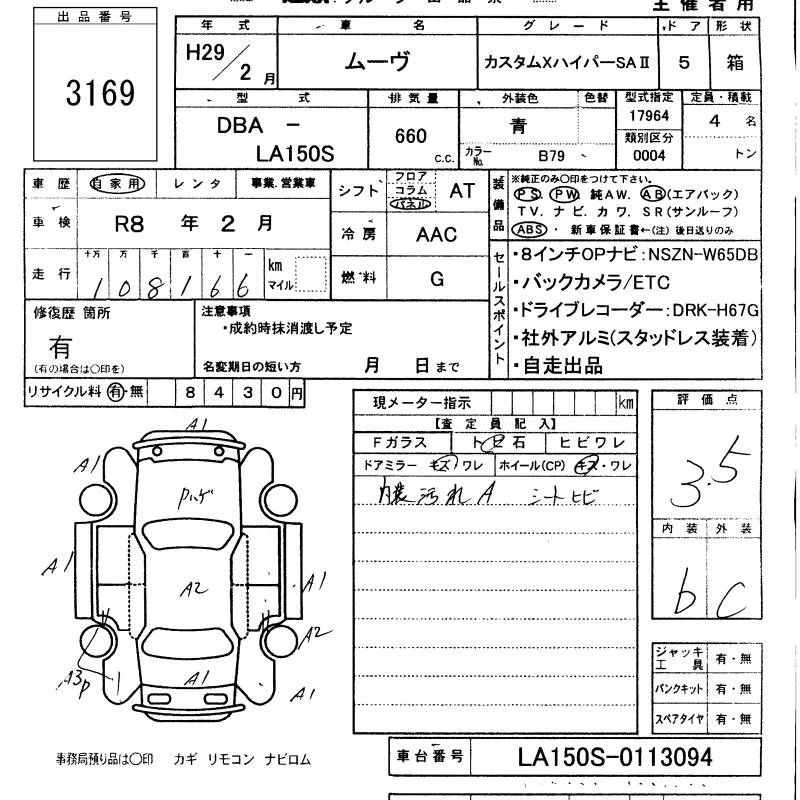 出品番号
3169
主催者用
年式 車名 グレード ドア 形状
H29/2月 ムーヴ カスタムXハイパーSAⅡ 5 箱
型式 排気量 外装色 色替 型式指定 定員・積載
DBA - LA150S 660 c.c. 青 17964 4 名
カラーNo. B79 類別区分 0004 トン
車歴 自家用 レンタ 事業.営業車
シフト フロア コラム パネル AT
装備品
※純正のみ○印をつけて下さい。
PS. PW. 純AW. AB(エアバック)
TV. ナビ. カワ. SR(サンルーフ)
ABS・ 新車保証書←(注) 後日送りのみ
車検 R8 年 2 月
冷房 AAC
走行 十万 万 千 百 十 一
108166 km マイル
燃料 G
セールスポイント
・8インチOPナビ:NSZN-W65DB
・バックカメラ/ETC
・ドライブレコーダー:DRK-H67G
・社外アルミ(スタッドレス装着)
・自走出品
修復歴 箇所
有
(有の場合は○印を)
注意事項
・成約時抹消渡し予定
名変期日の短い方 月 日まで
リサイクル料 有・無 8430円
現メーター指示 km
【査定員記入】
Fガラス トビ石 ヒビワレ
ドアミラー キズ・ワレ ホイール(CP) キズ・ワレ
内装汚れA シートヒビ
評価点
3.5
内装 外装
b C
A1
A1 A1
Pハゲ
A1 A2 A1
A2
A3P A1 A1
ジャッキ工具 有・無
パンクキット 有・無
スペアタイヤ 有・無
事務局預り品は○印 カギ リモコン ナビロム
車台番号 LA150S-0113094